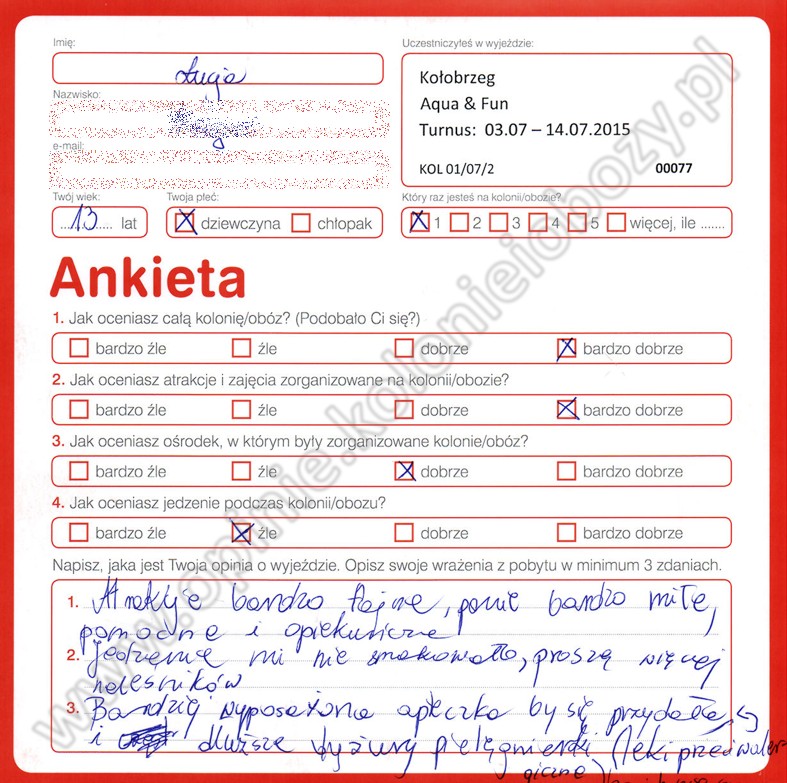 Imię:
Łucja
Uczestniczyłeś w wyjeździe:
Kołobrzeg
Aqua & Fun
Turnus: 03.07 – 14.07.2015
KOL 01/07/2 00077
Nazwisko:
e-mail:
Twój wiek:
13 lat
Twoja płeć:
dziewczyna chłopak
Który raz jesteś na kolonii/obozie?
1 2 3 4 5 więcej, ile .......
Ankieta
1. Jak oceniasz całą kolonię/obóz? (Podobało Ci się?)
bardzo źle źle dobrze bardzo dobrze
2. Jak oceniasz atrakcje i zajęcia zorganizowane na kolonii/obozie?
bardzo źle źle dobrze bardzo dobrze
3. Jak oceniasz ośrodek, w którym były zorganizowane kolonie/obóz?
bardzo źle źle dobrze bardzo dobrze
4. Jak oceniasz jedzenie podczas kolonii/obozu?
bardzo źle źle dobrze bardzo dobrze
Napisz, jaka jest Twoja opinia o wyjeździe. Opisz swoje wrażenia z pobytu w minimum 3 zdaniach.
1. Atrakcje bardzo fajne, panie bardzo miłe,
pomocne i opiekuńcze
2. Jedzenie mi nie smakowało, proszę więcej
naleśników
3. Bardziej wyposażona apteczka by się przydała
i dłuższe dyżury pielęgniarki (leki przeciwaler
giczne)
www.opinie.kolonieiobozy.pl